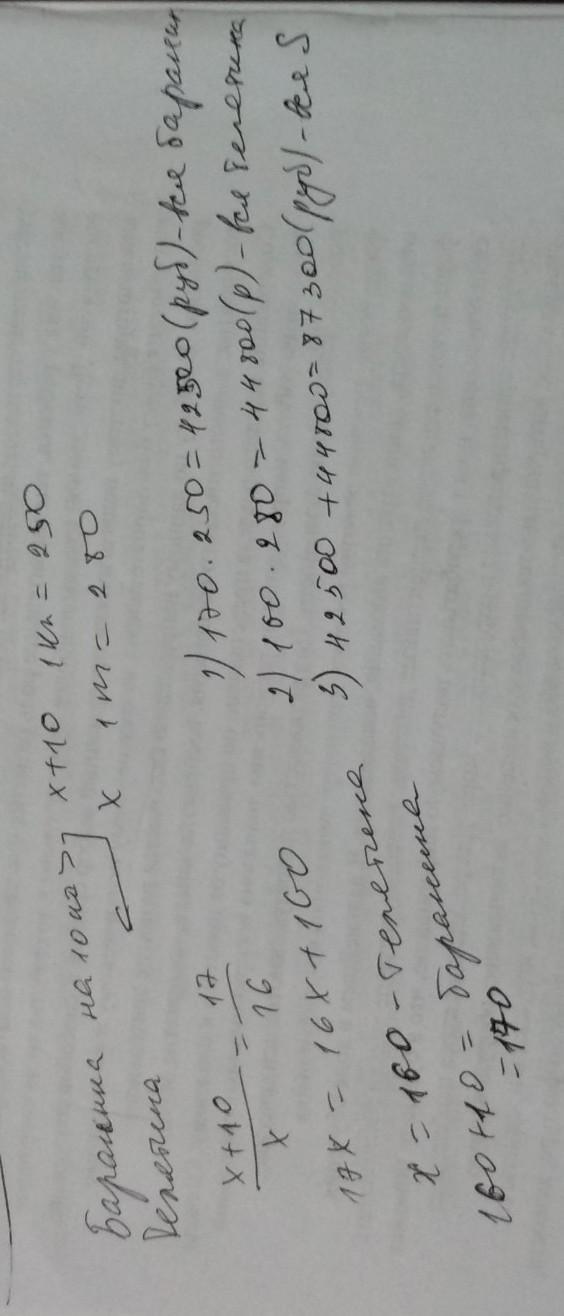 Баранина на 10 кг > x+10 1 кг = 250
Телятина x 1 т = 280
x+10/x = 17/16
17x = 16x + 160
x = 160 - Телятина
160+10 = баранина
= 170
1) 170 · 250 = 42500 (руб) - вся баранин
2) 160 · 280 = 44800 (р) - вся телятина
3) 42500 + 44800 = 87300 (руб) - вся S